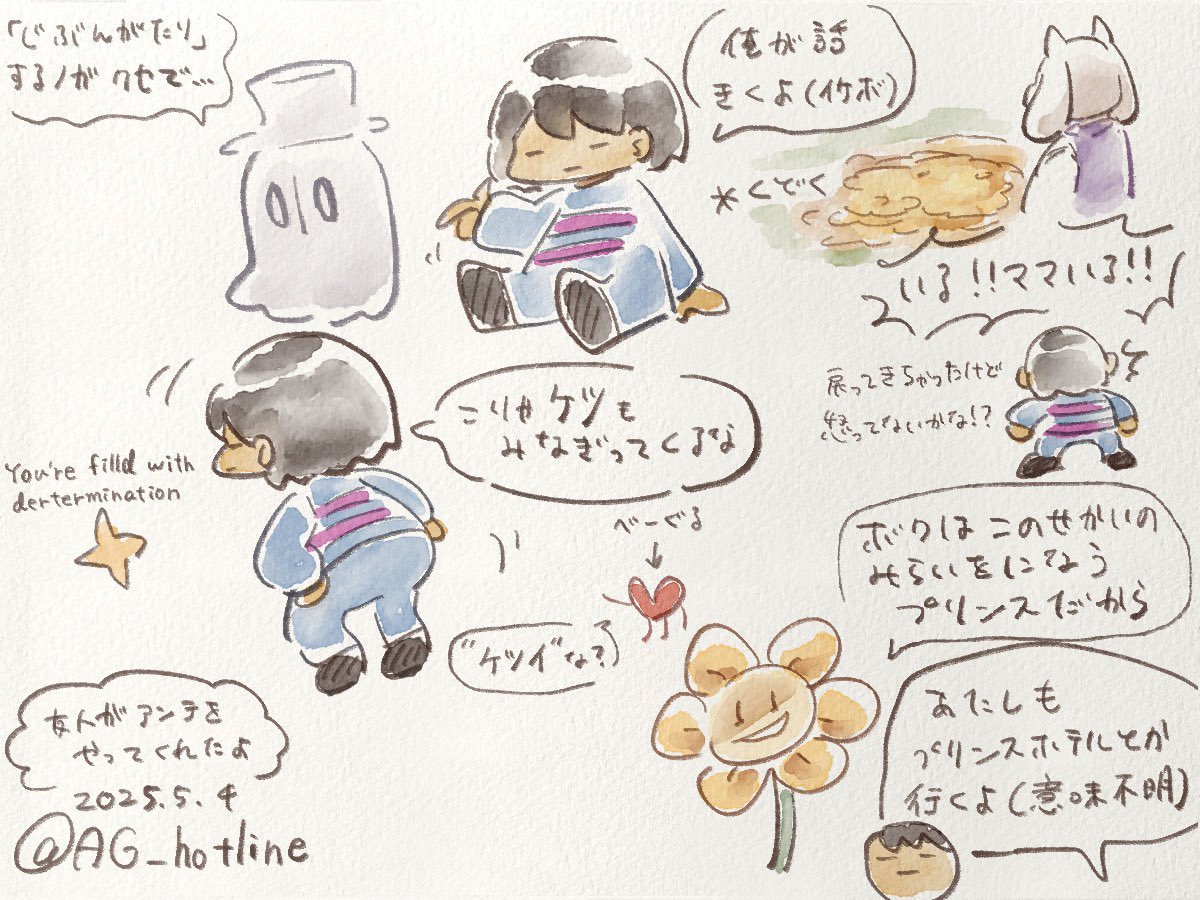 「じぶんがたり」
するノがクセで…
俺が話
きくよ(イケボ)
*くどく
いる!!ママいる!!
戻ってきちゃったけど
怒ってないかな!?
こりゃケツも
みなぎってくるな
You're filld with
dertermination
べーぐる
↓
"ケツイ"な?
ボクはこのせかいの
みらいをになう
プリンスだから
あたしも
プリンスホテルとか
行くよ(意味不明)
友人がアンテを
やってくれたよ
2025.5.4
@AG_hotline